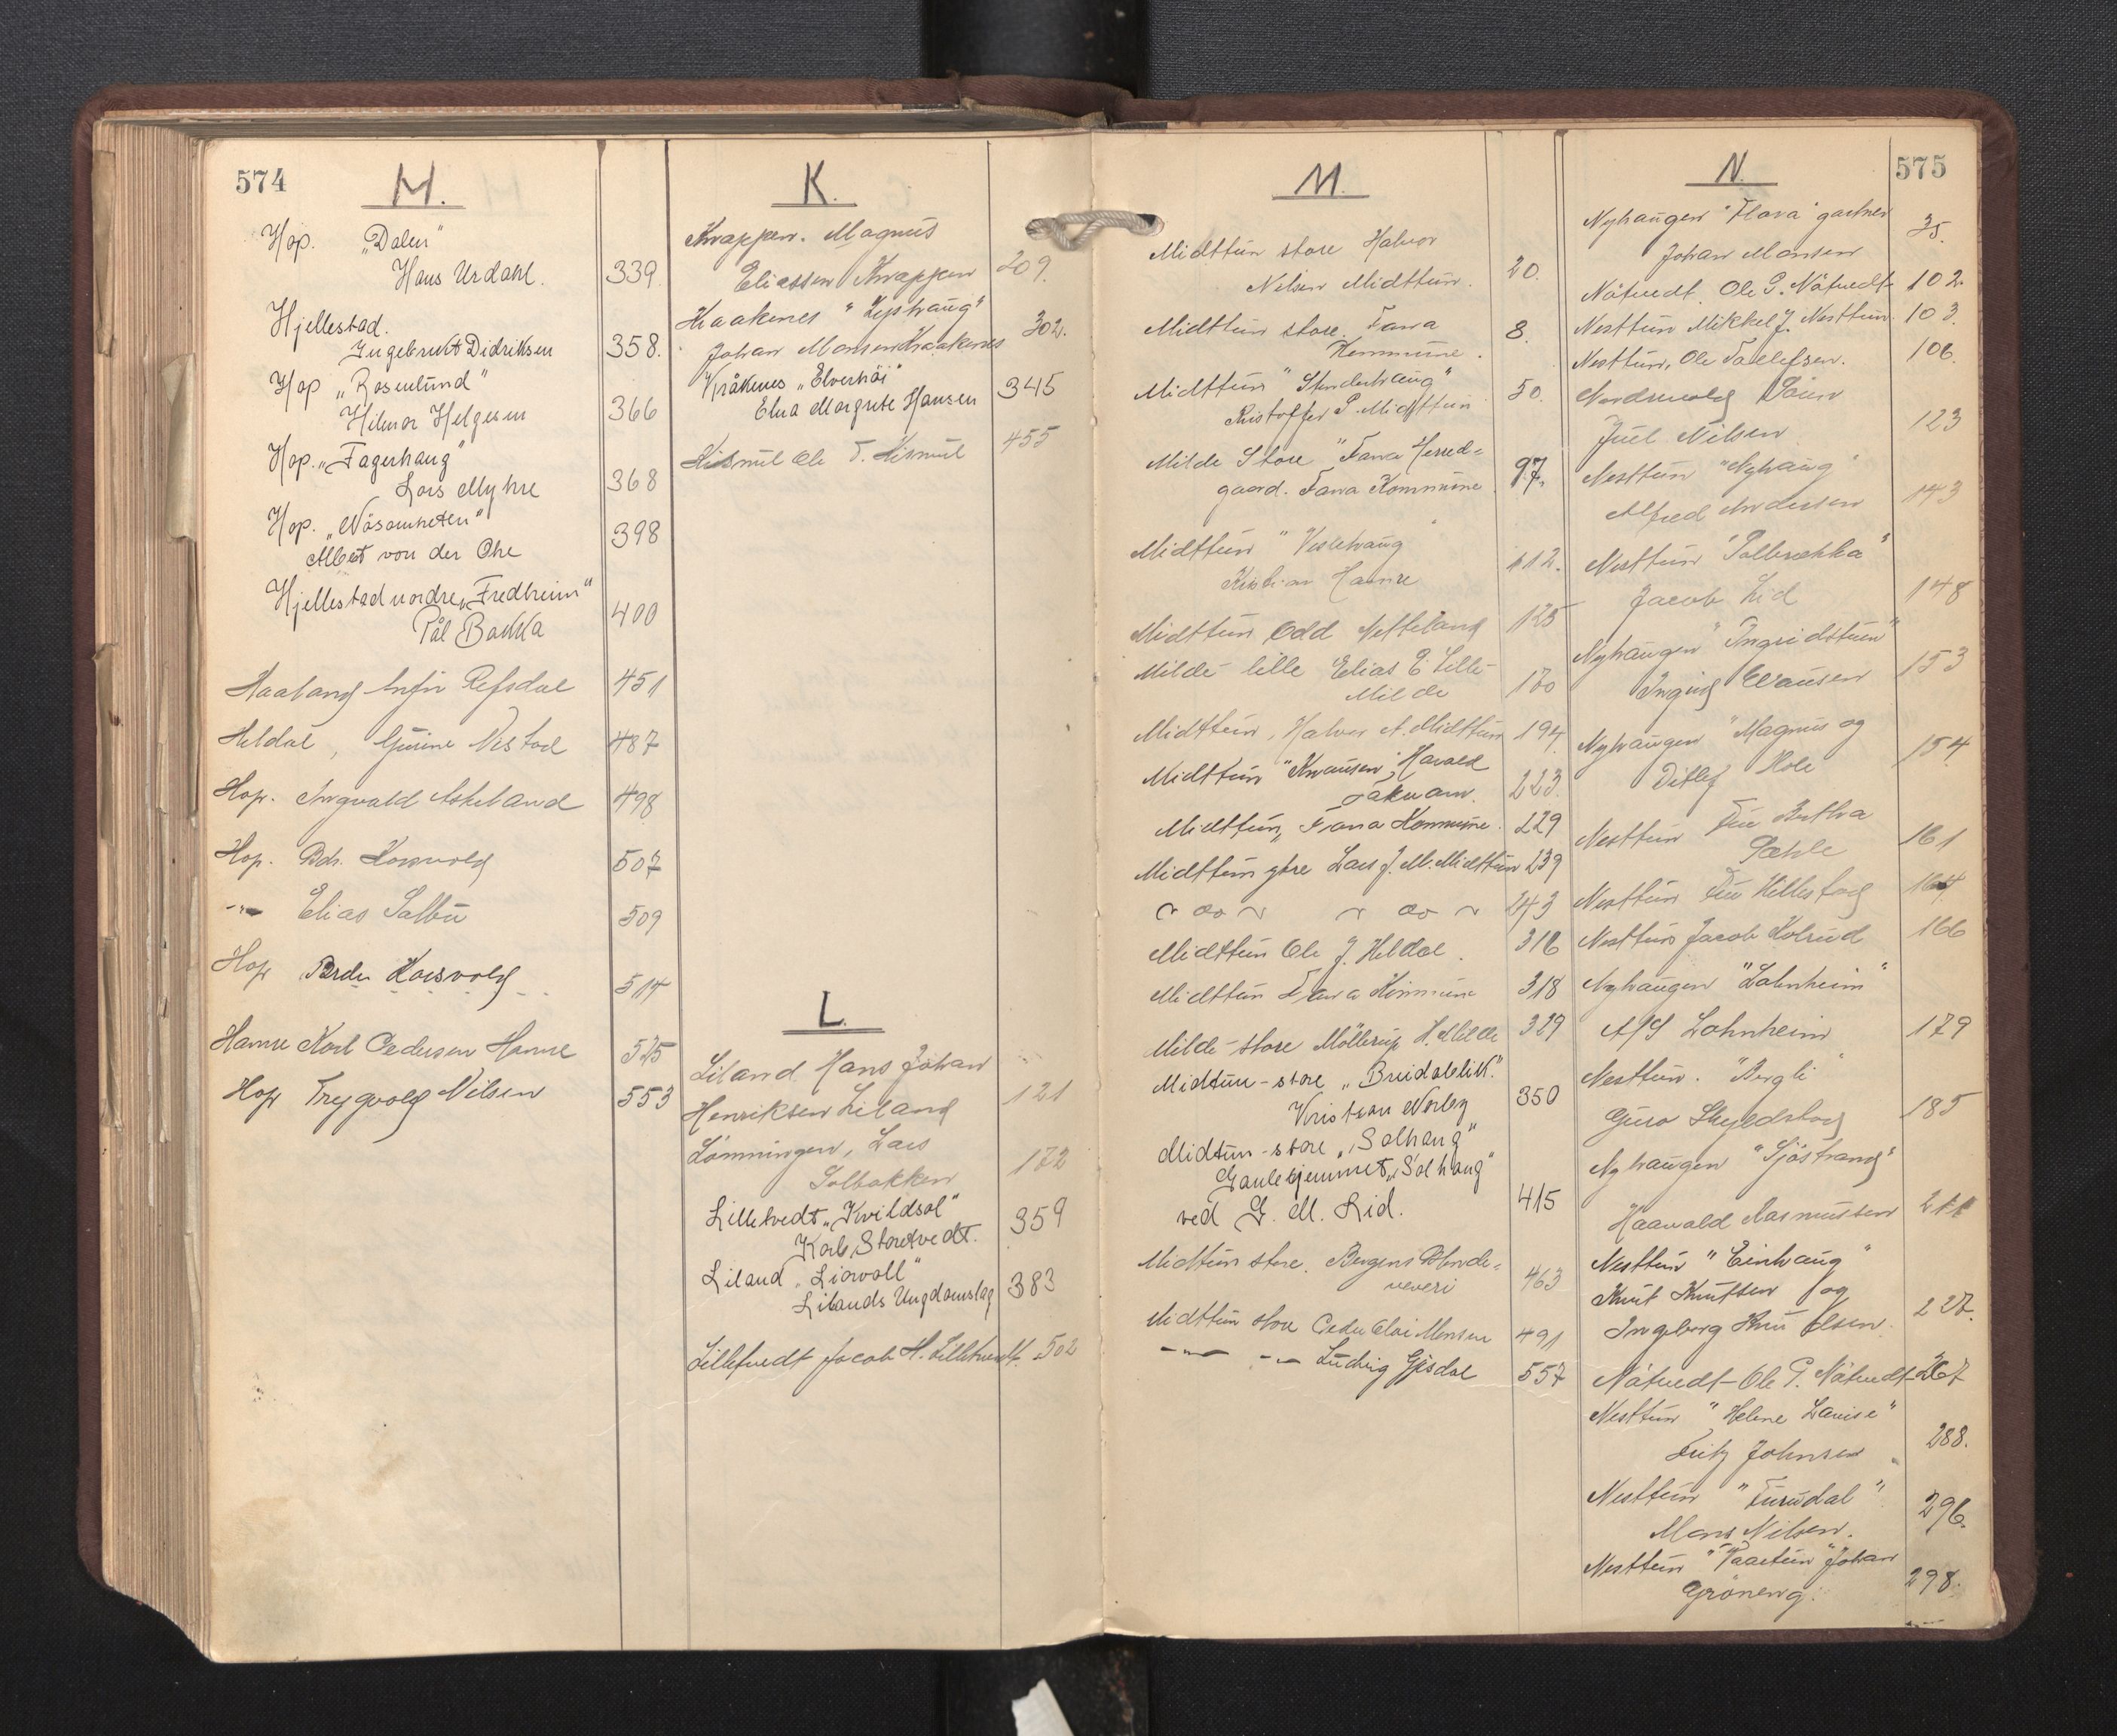 574
H.
Hop. „Dalen"
Hans Urdahl. 339.
Hjellestad.
Ingebrikt Didriksen 358.
Hop „Rosenlund"
Hilmar Helgesen 366
Hop. „Fagerhaug"
Lars Myhre 368
Hop.
Albert von der Ohe 398
Hjellestad nordre „Fredheim"
Pål Bakka 400
Haaland Refsdal 451
Heldal, Gurine 487
Hop. Askeland 498
Hop. 507
-"- Elias Salbu 509
Hop Peder 514
Hamre Karl Pedersen Hamre 525
Hop Trygvald Nilsen 553
K.
Knappen. Magnus
Eliassen Knappen 209.
Kraakenes
Johan Monsen Kraakenes 302.
Kråkenes „Elverhöi"
Elna Margrete Hansen 345
Kismul Ole T. Kismul 455
L.
Liland Hans Johan
Henriksen Liland 121
Lönningen, Lars
Solbakken 172
Lilletvedt „Kvildsol"
Karl Storetvedt. 359
Liland „Liavoll"
Lilands Ungdomslag 383
Lilletvedt Jacob H. Lilletvedt. 502
575
M.
Midttun store Halvor
Nilsen Midttun. 20.
Midttun store. Fana
Kommune. 8.
Midttun
Kristoffer P. Midttun 50.
Milde Store "Fana Herred=
gaard. Fana Kommune 97.
Midttun "Veslehaug"
Kristian Hamre 112.
Midttun Odd Netteland 125
Milde lille Elias E. Lille-
Milde 170
Midttun, Halvor A. Midttun 194.
Midttun Harald
Jakman. 223.
Midttun, Fana Kommune. 229
Midttun ytre Lars J. M. Midttun 239
243
Midttun Ole J. Heldal. 316
Midttun Fana Kommune 318
Milde store Möllerup H. Milde 329
Midtun-store „Breidablik."
Kristian 350
Midtun-store „Solhaug"
Gamlehjemmet „Solhaug"
ved G. M. Lid. 415
Midttun store. Bergens
veveri 463
Midttun store Peder Monsen 491
-"- -"- Ludvig Gjesdal 557
N.
Nyhaugen "Flora" gartner
Johan Monsen 35.
Nåtvedt. Ole P. Nåtvedt 102.
Nesttun Mikkel J. Nesttun 103.
Nesttun, Ole Tollefsen. 106.
Nordrevold
Juel Nilsen 123
Nesttun "Nyhaug"
Alfred Andersen 143
Nesttun "Solbrekka"
Jacob Lid 148
Nyhaugen "Ingridstuen"
153
Nyhaugen "Magnus og
Ditlef 154
Nesttun Fru Bertha
161
Nesttun Fru Hillestad
Nesttun Jacob Kolrud 166
Nyhaugen "Lohnheim"
A/S Lohnheim 179
Nesttun. "Bergli"
Guro Skjeldstad 185
Nyhaugen "Sjöstrand"
Haavald Rasmussen
Nesttun "Einhaug"
Knut Knutsen og
Ingeborg Olsen. 227.
Nåtvedt-Ole P. Nåtvedt 267
Nesttun "Helene Louise"
Fritz Johnsen 288.
Nesttun "Furudal"
Mons Nilsen. 296.
Nesttun Johan
Gröneng. 298.